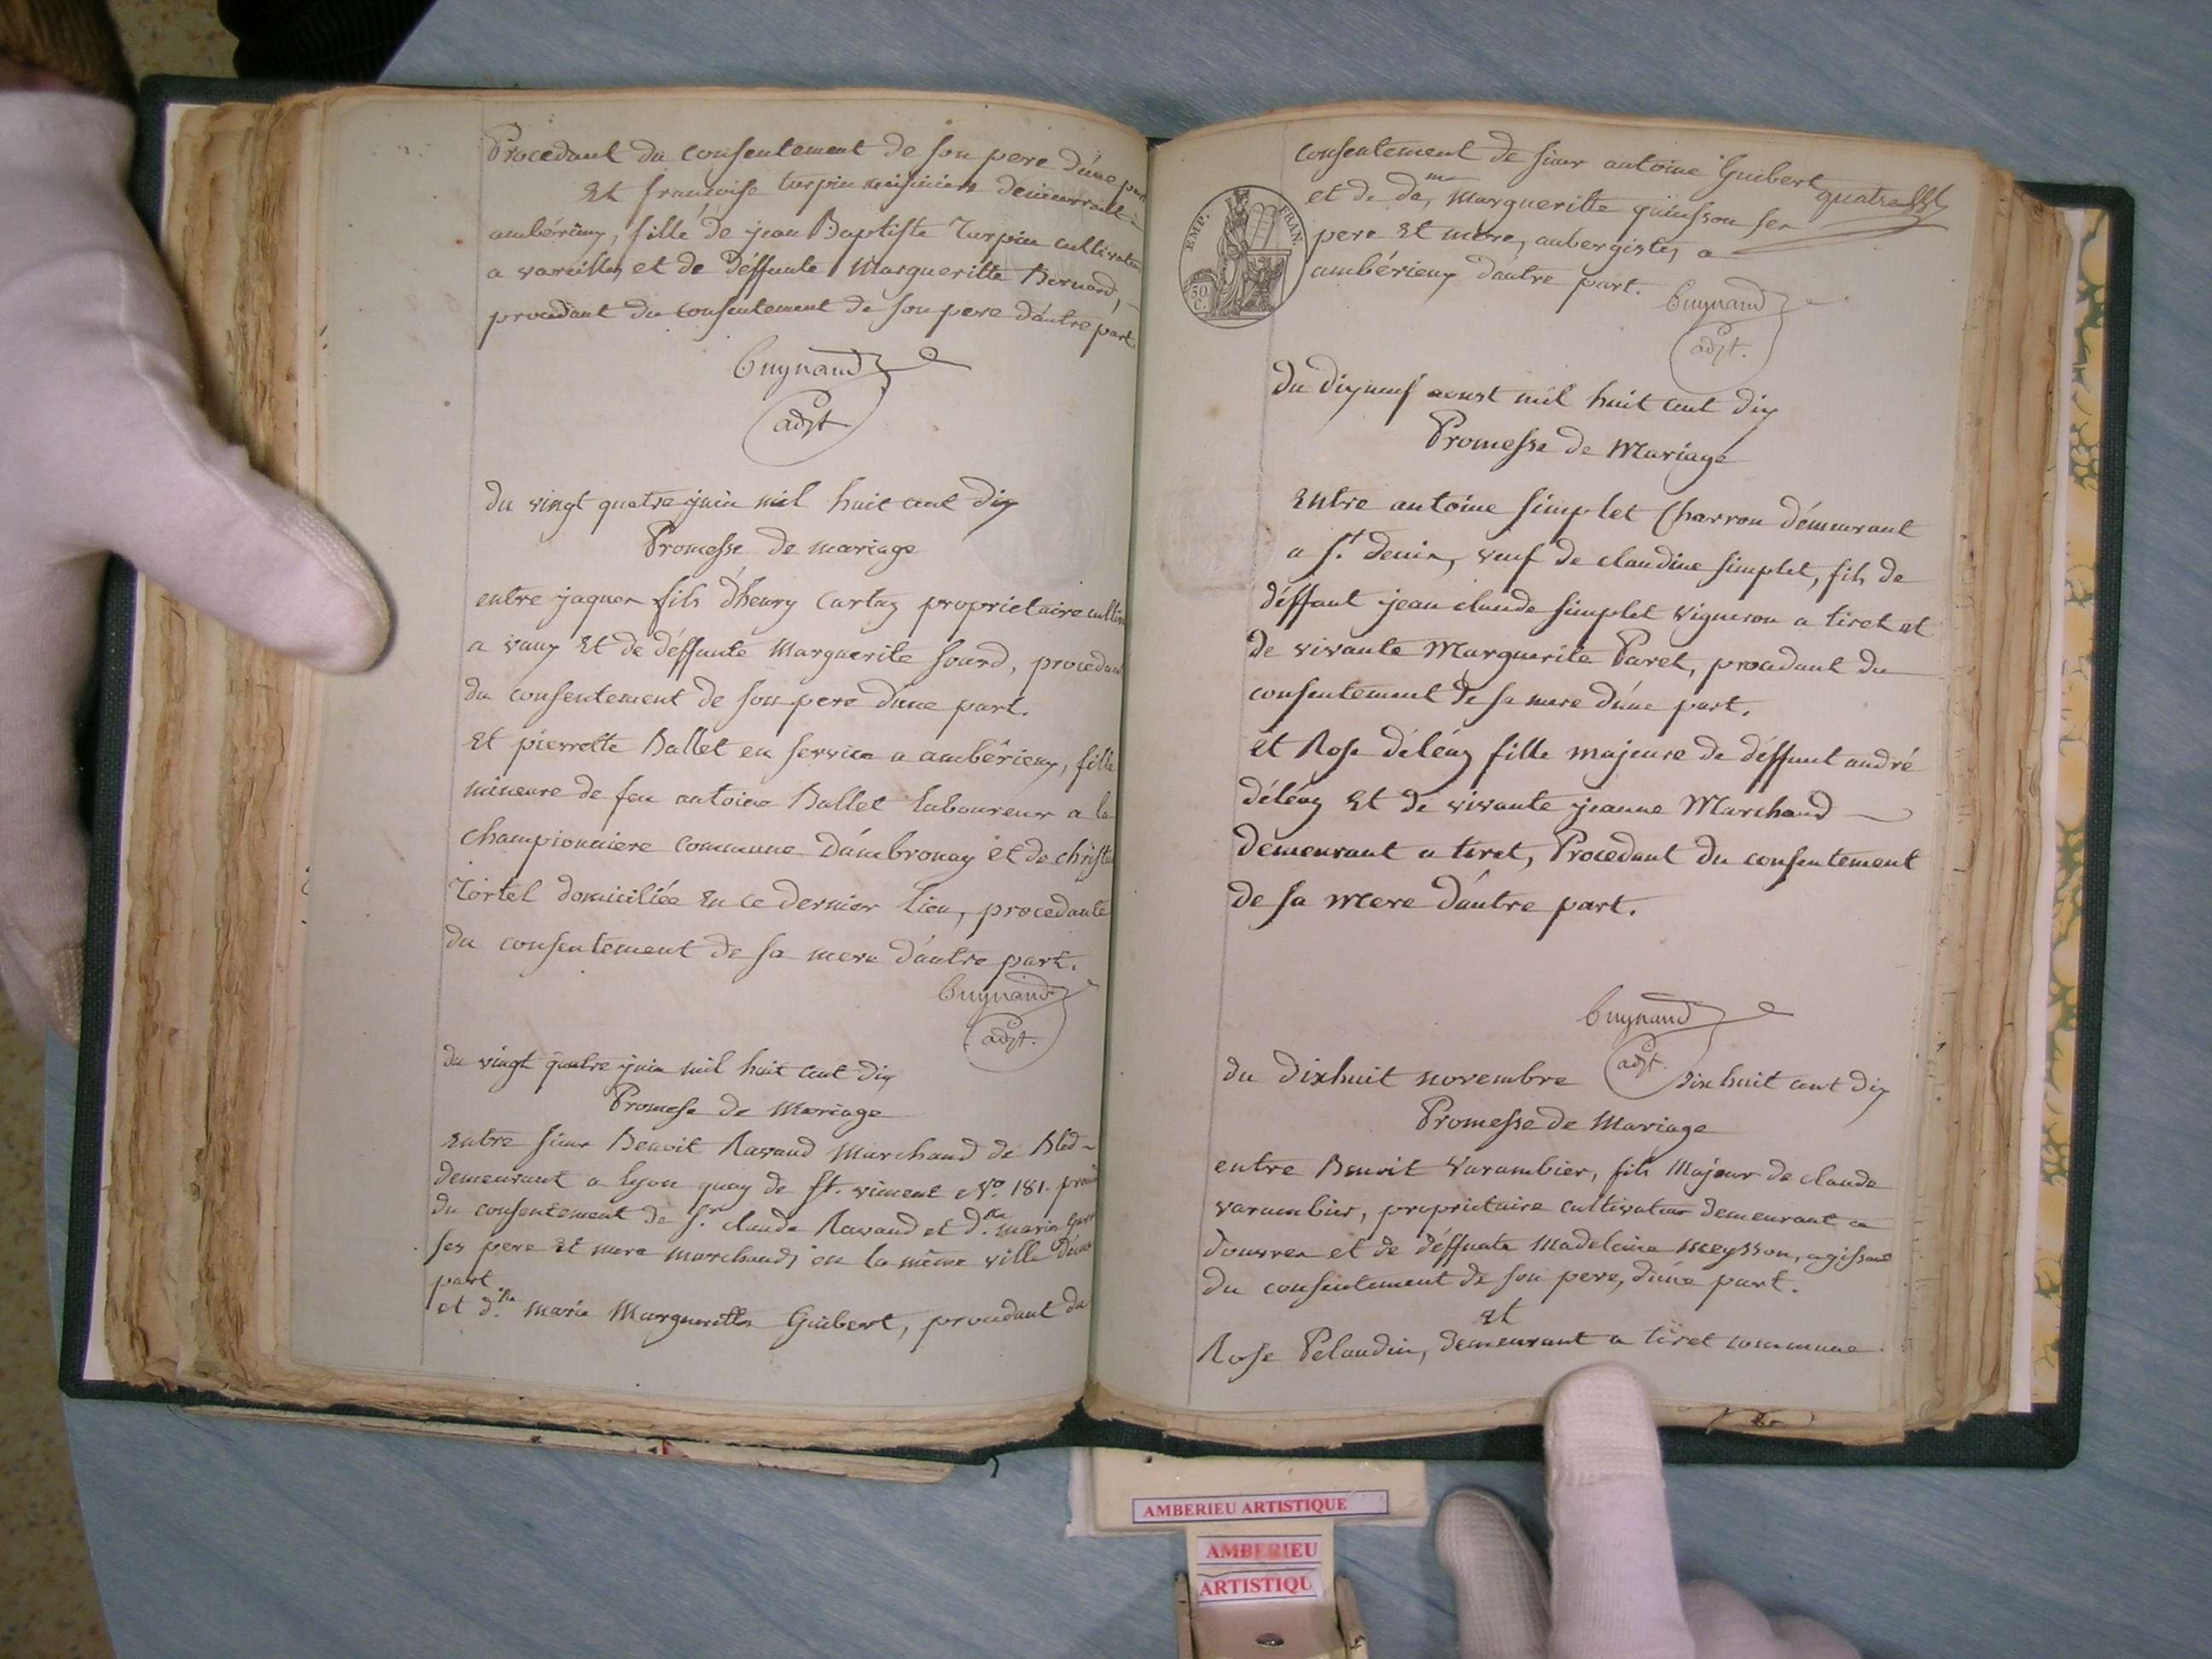 Procedant du consentement de son pere d'une part
Et francoise turpin cuisiniere demeurant a
ambérieux, fille de jean Baptiste Turpin cultivateur
a vareilles et de déffunte Margueritte Bernard,
procedant du consentement de son pere d'autre part
Cuynaud
adjt
du vingt quatre juin mil huit cent dix
Promesse de mariage
entre jaques fils d'henry Cartaz proprietaire
a vaux Et de déffunte Marguerite Sourd, procedant
du consentement de son pere d'une part.
Et pierrette Ballet en service a ambérieux, fille
mineure de feu antoine Ballet laboureur a la
championniere commune d'ambronay et de
Tortel domiciliée en ce dernier lieu, procedante
du consentement de sa mere d'autre part.
Cuynaud
adjt.
du vingt quatre juin mil huit cent dix
Promesse de Mariage
entre sieur Benoit Ravaud Marchand de Bled
demeurant a lyon quay de St. vincent No. 181.
du consentement de Sr. claude Ravaud et dlle. marie
ses pere et mere marchands en la même ville d'une
part
et dlle. marie Margueritte Guibert, procedant du
consentement de sieur antoine Guibert
et de dame Margueritte quinson ses
pere et mere, aubergistes a
ambérieux d'autre part.
EMP. FRAN.
50 C.
Cuynaud
adjt.
du dixneuf aoust mil huit cent dix
Promesse de Mariage
entre antoine simplet Charron démeurant
a St. denis, veuf de claudine simplet, fils de
déffunt jean claude simplet vigneron a tiret et
de vivante Marguerite Paret, procedant du
consentement de sa mere d'une part.
et Rose déléaz fille majeure de déffunt andré
déléaz Et de vivante jeanne Marchand
demeurant a tiret, Procedant du consentement
de sa mere d'autre part.
Cuynaud
adjt.
du dixhuit novembre dix huit cent dix
Promesse de Mariage
entre Benoit Varambier, fils Majeur de claude
varambier, proprietaire cultivateur demeurant a
douvres et de déffunte Madeleine meysson, agissant
du consentement de son pere, d'une part.
Et
Rose Pelaudin, demeurant a tiret commune
AMBERIEU ARTISTIQUE
AMBERIEU
ARTISTIQU